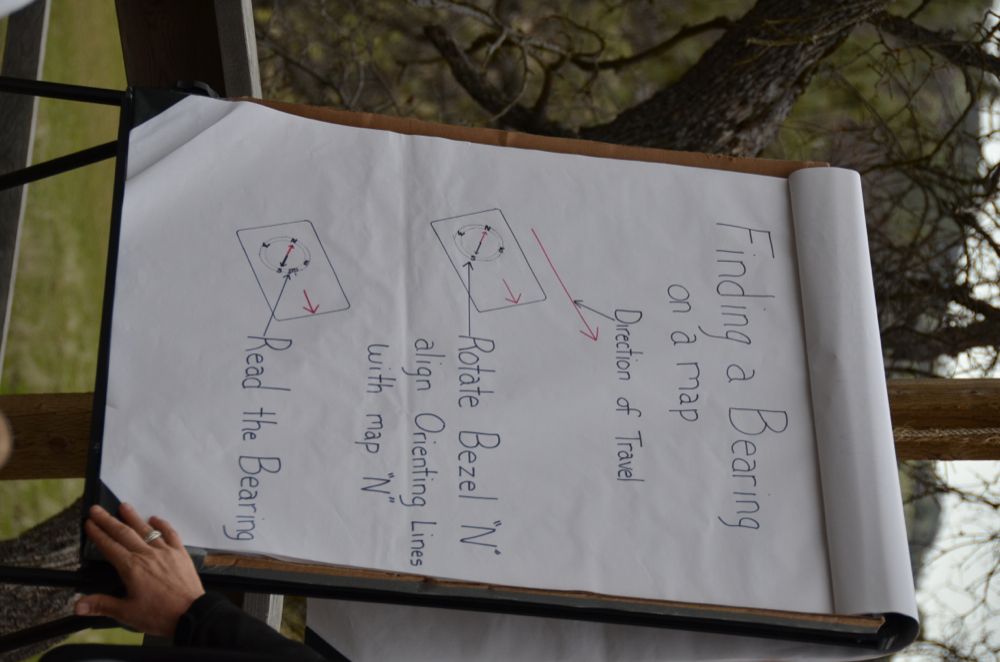 Finding a Bearing
on a map
Direction of Travel
Rotate Bezel "N"
align Orienting Lines
with map "N"
Read the Bearing